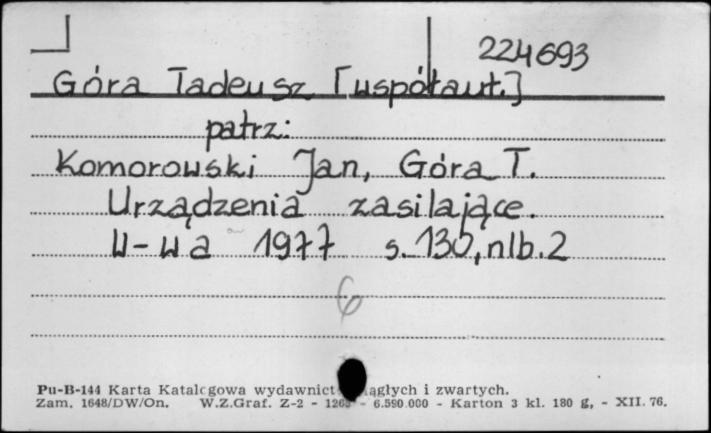 224693
Góra Tadeusz [współaut.]
patrz:
Komorowski Jan, Góra T.
Urządzenia zasilające.
W-wa 1977 s. 130, nlb. 2
6
Pu-B-144 Karta Katalogowa wydawnict ciągłych i zwartych.
Zam. 1648/DW/On. W.Z.Graf. Z-2 - 1263 - 6.590.000 - Karton 3 kl. 180 g, - XII. 76.